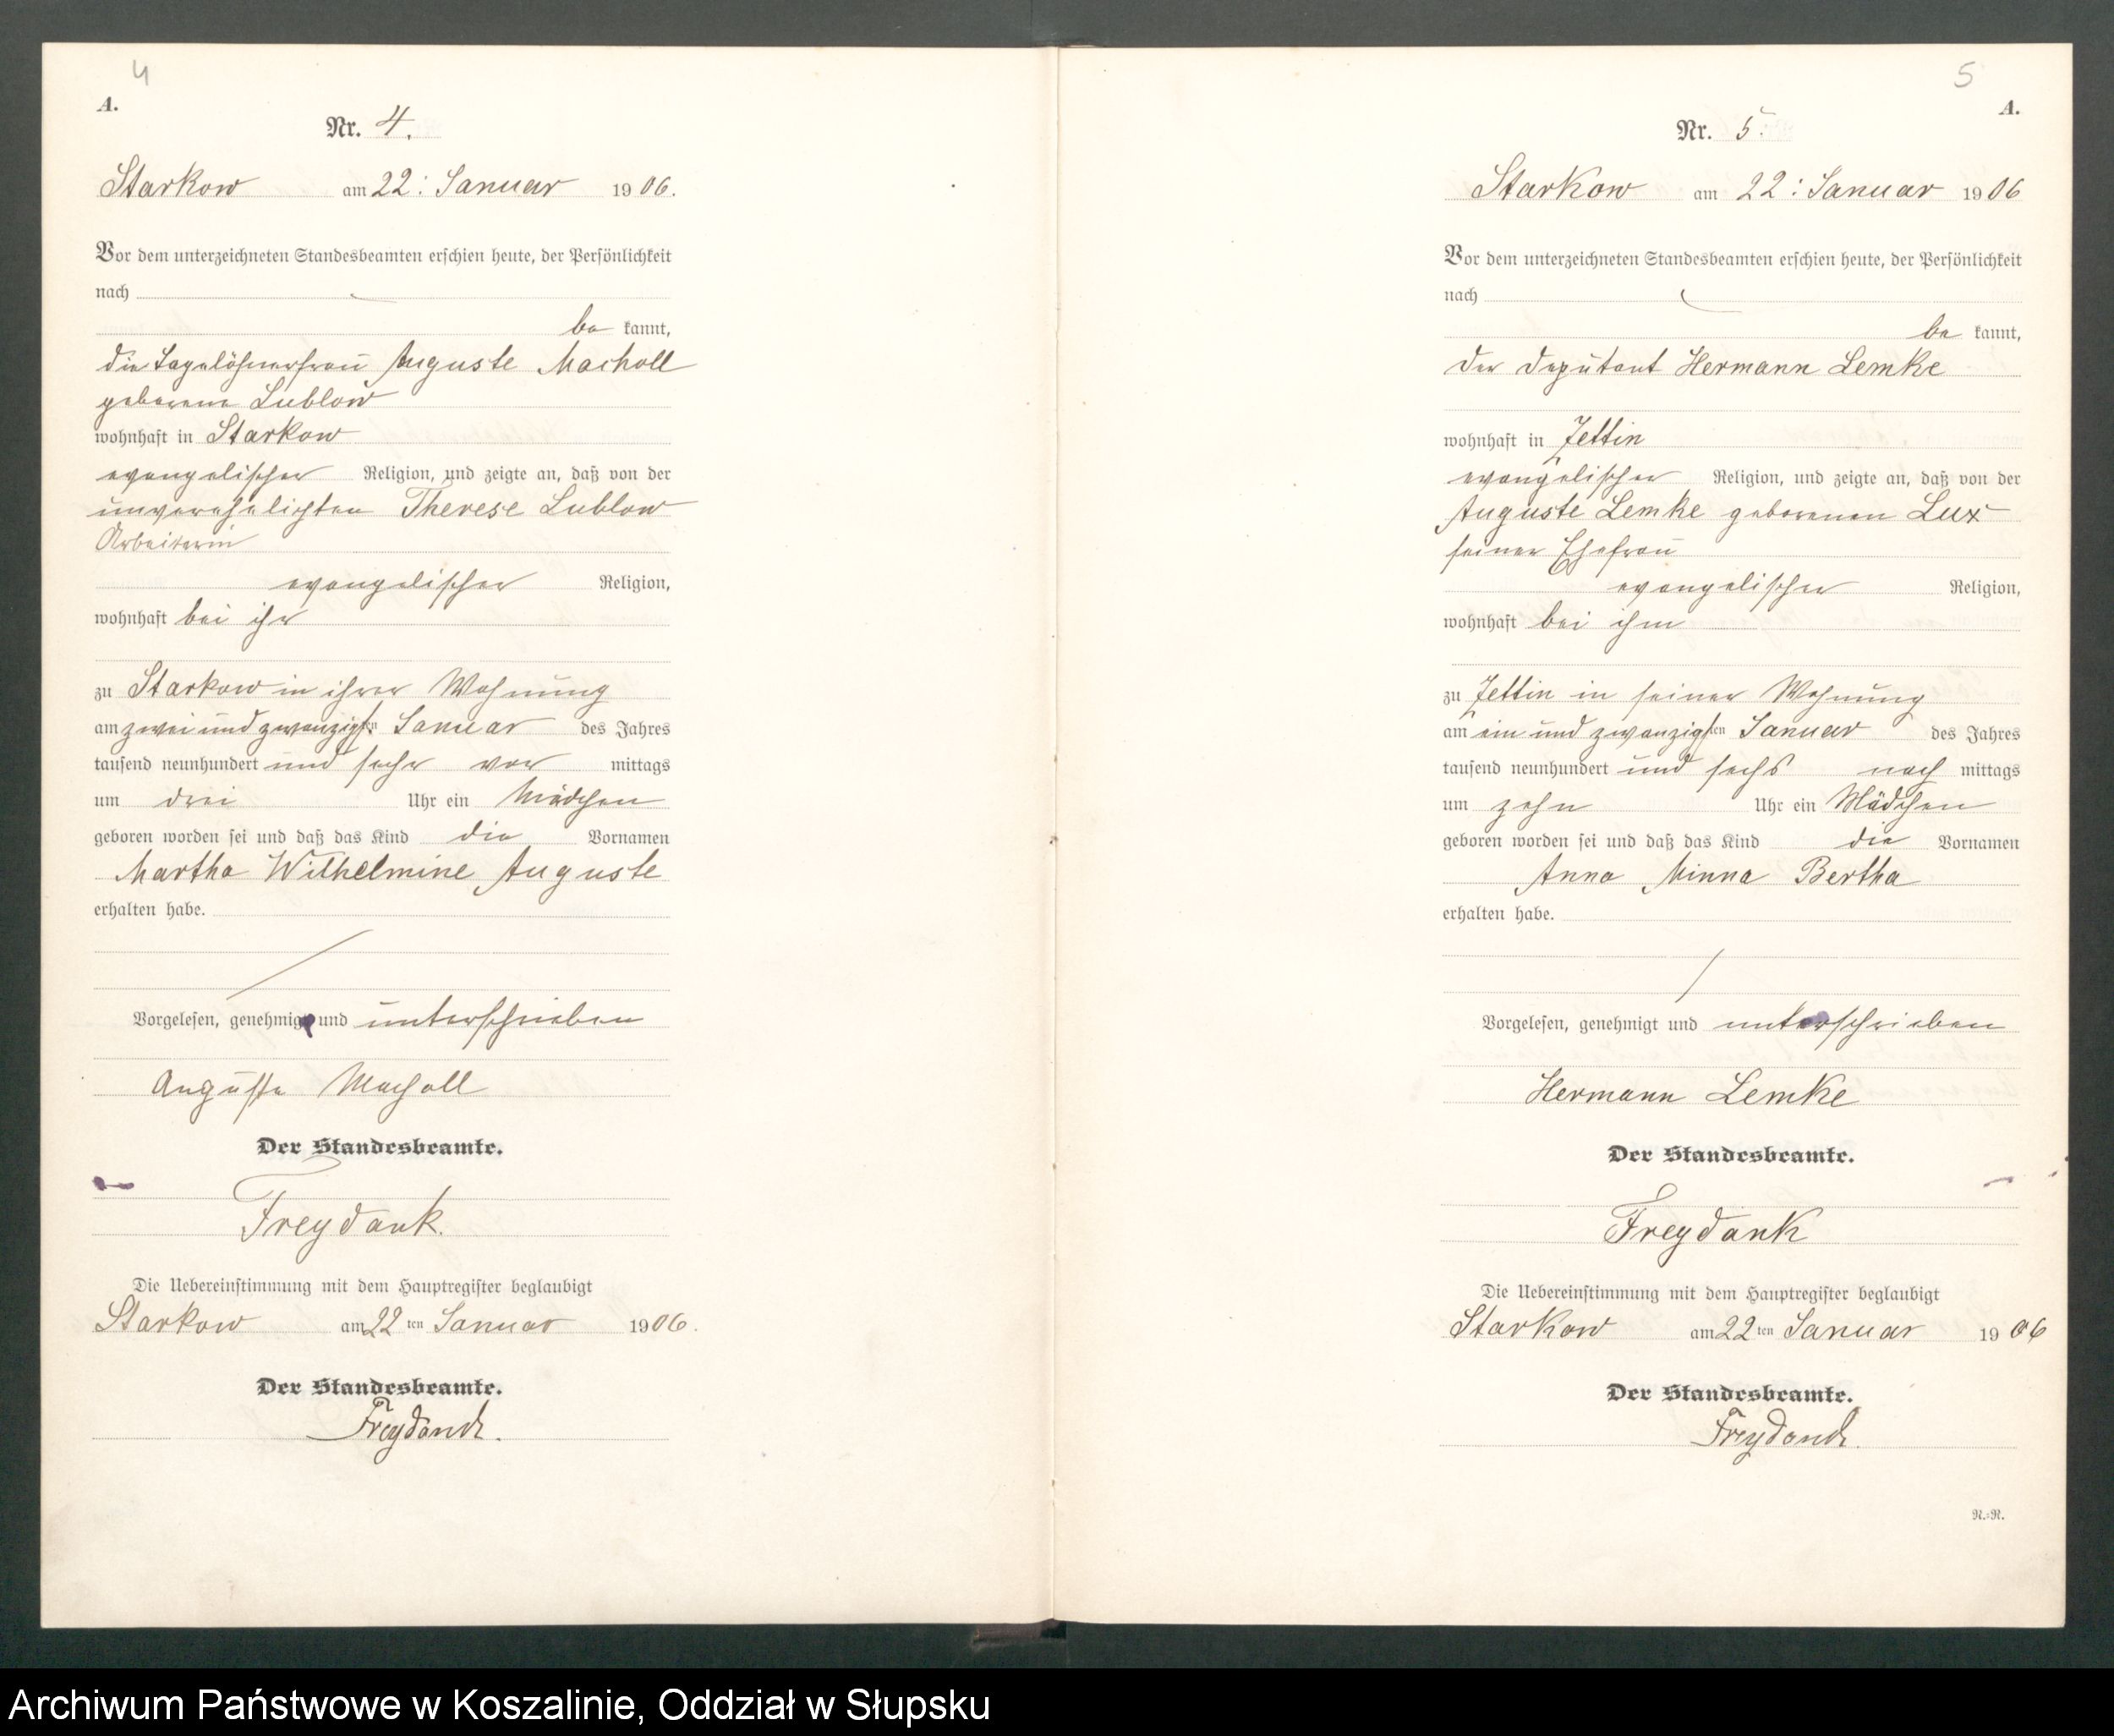 4
A.
Nr. 4.
Starkow am 22: Januar 1906.
Vor dem unterzeichneten Standesbeamten erschien heute, der Persönlichkeit
nach
be kannt,
die Tagelöhnerfrau Auguste Macholl
geborene Lublow
wohnhaft in Starkow
evangelischer Religion, und zeigte an, daß von der
unverehelichten Therese Lublow
Arbeiterin
evangelischer Religion,
wohnhaft bei ihr
zu Starkow in ihrer Wohnung
am zwei und zwanzigsten Januar des Jahres
tausend neunhundert und sechs vor mittags
um drei Uhr ein Mädchen
geboren worden sei und daß das Kind die Vornamen
Martha Wilhelmine Auguste
erhalten habe.
Vorgelesen, genehmigt und unterschrieben
Auguste Macholl
Der Standesbeamte.
Freydank.
Die Uebereinstimmung mit dem Hauptregister beglaubigt
Starkow am 22 ten Januar 1906.
Der Standesbeamte.
Freydank.
5
A.
Nr. 5.
Starkow am 22: Januar 1906
Vor dem unterzeichneten Standesbeamten erschien heute, der Persönlichkeit
nach
be kannt,
der Deputant Hermann Lemke
wohnhaft in Jettin
evangelischer Religion, und zeigte an, daß von der
Auguste Lemke geborenen Lux
seiner Ehefrau
evangelischer Religion,
wohnhaft bei ihm
zu Jettin in seiner Wohnung
am ein und zwanzigsten Januar des Jahres
tausend neunhundert und sechs nach mittags
um zehn Uhr ein Mädchen
geboren worden sei und daß das Kind die Vornamen
Anna Minna Bertha
erhalten habe.
Vorgelesen, genehmigt und unterschrieben
Hermann Lemke
Der Standesbeamte.
Freydank
Die Uebereinstimmung mit dem Hauptregister beglaubigt
Starkow am 22 ten Januar 1906
Der Standesbeamte.
Freydank.
N.=N.
Archiwum Państwowe w Koszalinie, Oddział w Słupsku